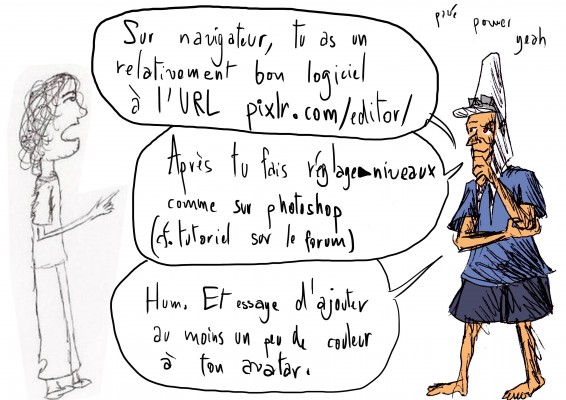 Sur navigateur, tu as un
relativement bon logiciel
à l'URL pixlr.com/editor/
Après tu fais réglage▶niveaux
comme sur photoshop
(cf. tutoriel sur le forum)
Hum. Et essaye d'ajouter
au moins un peu de couleur
à ton avatar.
power
yeah